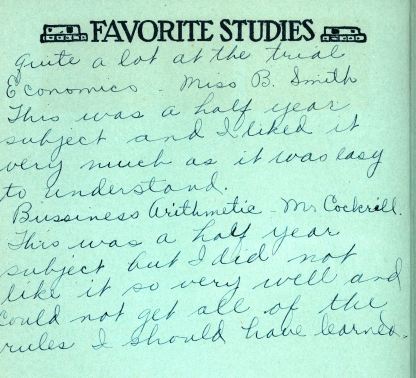 FAVORITE STUDIES
quite a lot at the trial
Economics - Miss B. Smith
This was a half year
subject and I liked it
very much as it was easy
to understand.
Bussiness Arithmetic - Mr. Cockrell.
This was a half year
subject but I did not
like it so very well and
could not get all of the
rules I should have learned.